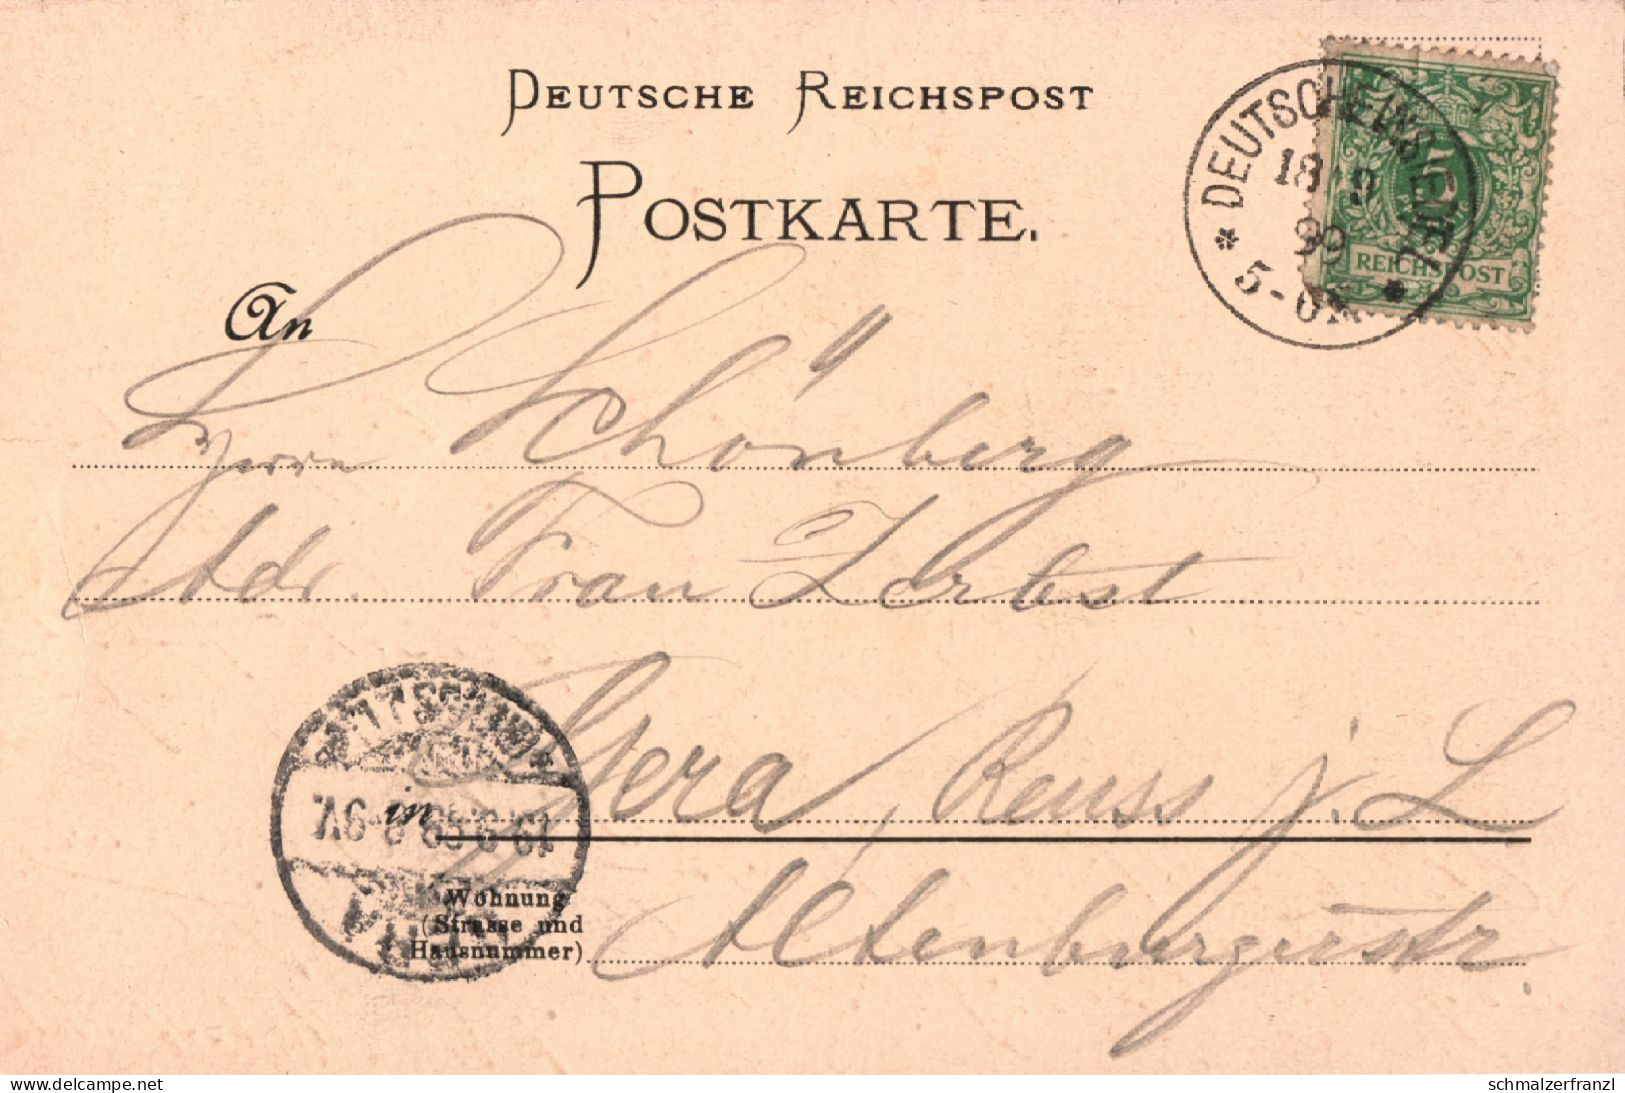 DEUTSCHE REICHSPOST
POSTKARTE.
DEUTSCHEINSIEDEL
18 9
99
5-6N
5
REICHSPOST
An
Herrn Schönberg
Adr. Frau Zerbst
in Gera, Reuss j. L
Wohnung
(Strasse und
Hausnummer)
Altenburgerstr.
19.9.99 8-9V.
www.delcampe.net
schmalzerfranzl